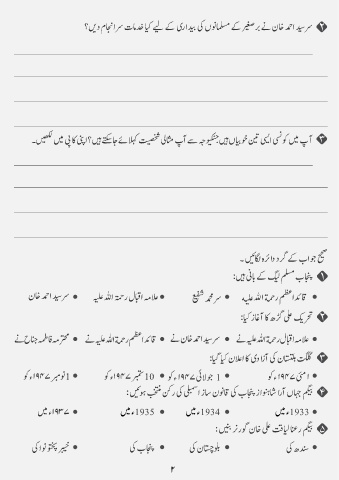 ۲ سرسید احمد خان نے برصغیر کے مسلمانوں کی بیداری کے لیے کیا خدمات سرانجام دیں؟
۳ آپ میں کونسی ایسی تین خوبیاں ہیں جنکیوجہ سے آپ مثالی شخصیت کہلائے جاسکتے ہیں؟ اپنی کاپی میں لکھیں۔
صحیح جواب کے گرد دائرہ لگائیں۔
۱ پنجاب مسلم لیگ کے بانی ہیں:
• قائداعظم رحمۃ اللہ علیہ • سر محمد شفیع • علامہ اقبال رحمۃ اللہ علیہ • سرسید احمد خان
۲ تحریک علی گڑھ کا آغاز کیا:
• علامہ اقبال رحمۃ اللہ علیہ نے • سرسید احمد خان نے • قائداعظم رحمۃ اللہ علیہ نے • محترمہ فاطمہ جناح نے
۳ گلگت بلتستان کی آزادی کا اعلان کیا گیا:
• ۱مئی ۱۹۴۷ء کو • 1 جولائی ۱۹۴۷ء کو • 10 ستمبر ۱۹۴۷ء کو • 1 نومبر ۱۹۴۷ء کو
۴ بیگم جہاں آرا شاہنواز پنجاب کی قانون ساز اسمبلی کی رکن منتخب ہوئیں:
• 1933ء میں • 1934ء میں • 1935ء میں • ۱۹۳۷ء میں
۵ بیگم رعنا لیاقت علی خان گورنر بنیں:
• سندھ کی • بلوچستان کی • پنجاب کی • خیبر پختونخوا کی
۲